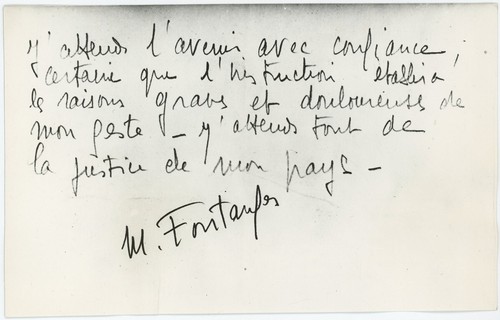 J'attends l'avenir avec confiance,
certaine que l'instruction établira
les raisons graves et douloureuses de
mon geste – J'attends tout de
la justice de mon pays –
M. Fontanges